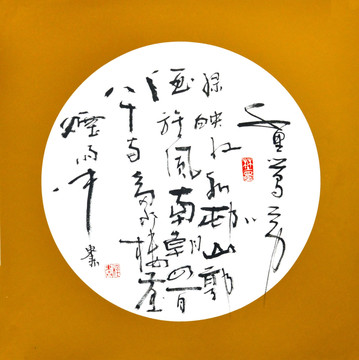 千里鶯啼
綠映紅水邨山郭
酒旗風南朝四百
八十寺多少樓臺
煙雨中